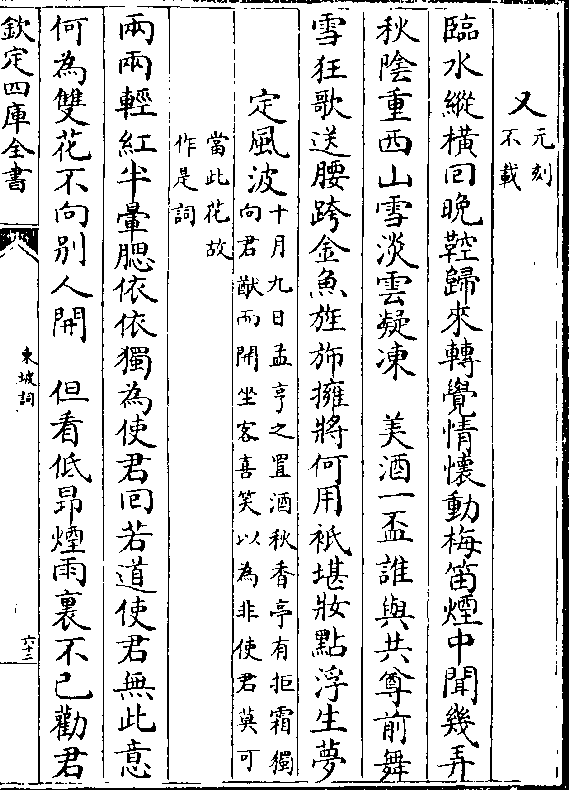 又元刻
不載
臨水縱橫回晩鞚歸來轉覺情懷動梅笛煙中聞幾弄
秋陰重西山雪淡雲凝凍　美酒一盃誰與共尊前舞
雪狂歌送腰跨金魚旌斾擁將何用衹堪妝點浮生夢
定風波十月九日孟亨之置酒秋香亭有拒霜獨
向君猷而開坐客喜笑以為非使君莫可
當此花故
作是詞
兩兩輕紅半暈腮依依獨為使君回若道使君無此意
何為雙花不向別人開　但看低昂煙雨裏不已勸君
欽定四庫全書
東坡詞
六十二